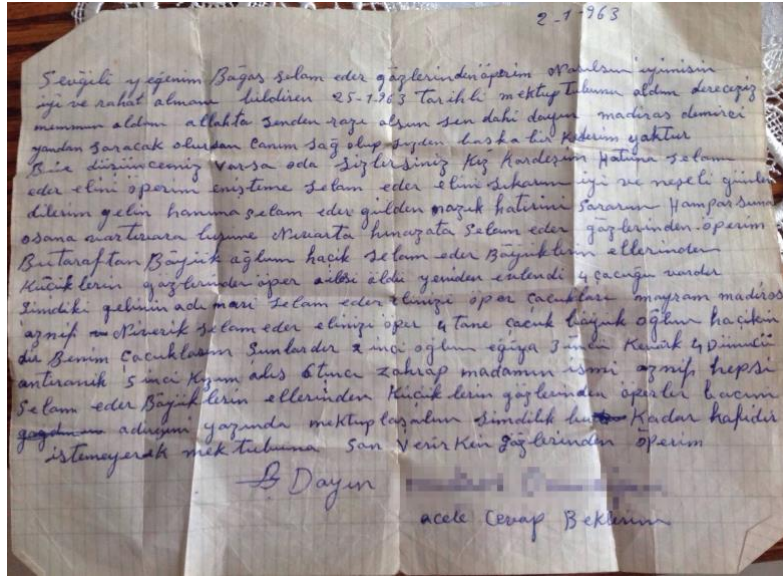 2-1-963
Sevğili yeğenim Bağas selam eder gözlerinden öperim Nasılsın iyimisin
iyi ve rahat almanı bildiren 25-1-963 tarihli mektup tubunu aldım derecesiz
memnun aldım allahta senden razı olsun sen dahi dayın madiras demirci
yandan saracak olursan canım sağ olup sizden başka bir kederim yaktur
Bir düşüncemiz varsa oda sizlersiniz Kız Kardeşim Hatuna selam
eder elini öperim enişteme selam eder elini sıkarım iyi ve neşeli günler
dilerim gelin hanıma selam eder gülden nazik hatirini sararım Hamparsuma
osana vartivara lusine Nıvarta hınazata selam eder gözlerinden öperim
Bu taraftan Böyük ağlum haçik selam eder Böyüklerin ellerinden
Küçiklerin gözlerinden öper ailesi öldü yeniden evlendi 4 çacuğu vardır
Şimdiki gelinin adı mari selam eder elinizi öper çacukları mayram madiros
aznif Nıverik selam eder elinizi öper 4 tane çacuk böyük oğlum haçikin
dir Benim Çacuklarım Şunlardır 2 inci oğlum eğiya 3 üncü Kevork 4 Dünücü
antıranik 5 inci Kızım alis 6 tıncı zahrap madamın ismi aznif hepsi
Selam eder Böyüklerin ellerinden Küçiklerin gözlerinden öperler bacım
adireşini yazında mektuplaşalım şimdilik bu Kadar kafidir
istemeyerek mektubuma san verirken gözlerinden öperim
Dayın
acele Cevap Beklerim